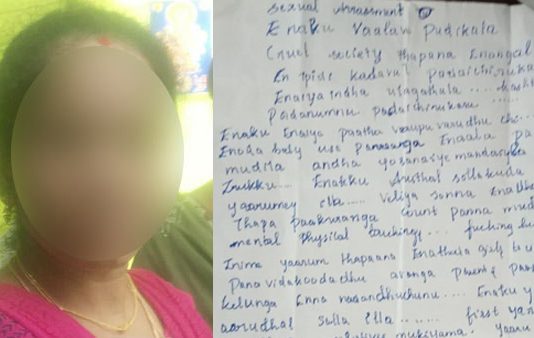 Sexual Harassment
Enaku Vaalavn Pudikala
Cruel society thapana Enangal
En ipide kadavul Padaichirukan
Enaiya indha ulagathula .... kashta
Padanumnu Padaichirukanu .....
Enaku Enaiya paatha veruppu varudhu che...
Enoda body use Panranga Enaala pa
mudila andha yosanaiye
Irukku.... Enakku Aarthal sollakuda
yaarumey ella..... veliya sonna Enaiya
Thapa paakuranga count panna mud
mental Physical touching .... fucking
Inime yaarum thapaana Enathula girls ta
Pana vidakoodadhu avanga
kelunga Enna nadandhuchunu.... Enaku y
aarudhal solla ella ........ first yar
mukiyama. yaaru